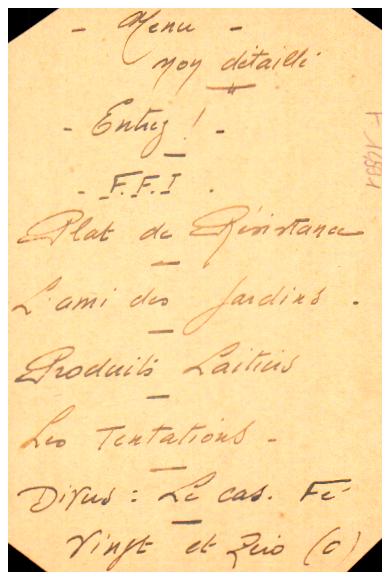 - Menu -
non détaillé
- Entrez ! -
- F.F.I .
Plat de Résistance
L'ami des Jardins .
Produits Laitiers
Les Tentations -
Divers : Le cas. Fé
Vingt et Zéro (0)